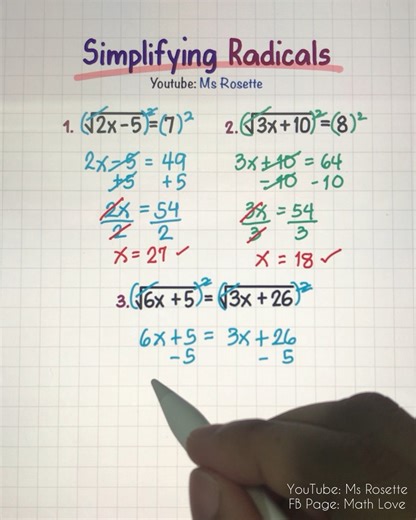 Simplifying Radicals
Youtube: Ms Rosette
1. (√2x-5)²=(7)² 2. (√3x+10)²=(8)²
2x-5 = 49 3x+10 = 64
+5 +5 -10 -10
2x/2 = 54/2 3x/3 = 54/3
x = 27 ✓ x = 18 ✓
3. (√6x+5)² = (√3x+26)²
6x+5 = 3x+26
-5 - 5
YouTube: Ms Rosette
FB Page: Math Love